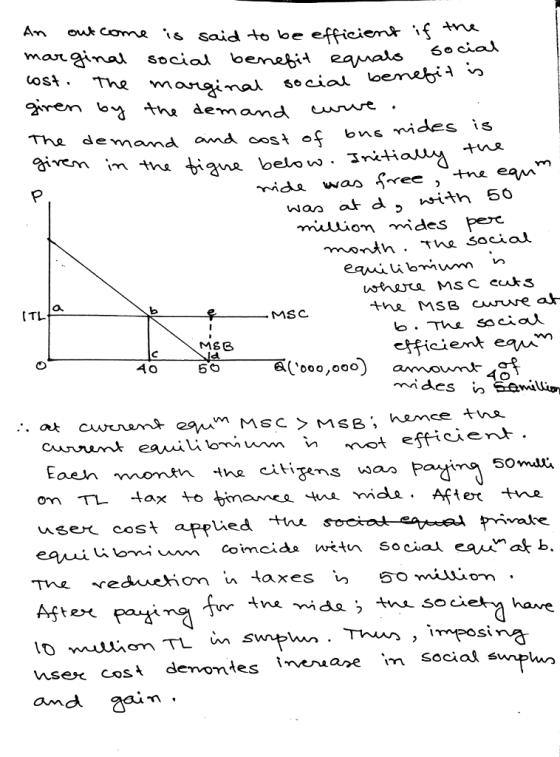 An outcome is said to be efficient if the
marginal social benefit equals social
cost. The marginal social benefit is
given by the demand curve.
The demand and cost of bus rides is
given in the figure below. Initially the
ride was free, the equm
was at d, with 50
million rides per
month. The social
equilibrium is
where MSC cuts
the MSB curve at
b. The social
efficient equm
amount of
rides is 50 40 million
P
1TL
a
b
e
MSC
MSB
c
d
O
40
50
Q('000,000)
∴ at current equm MSC > MSB; hence the
current equilibrium is not efficient.
Each month the citizens was paying 50 milli
on TL tax to finance the ride. After the
user cost applied the social equal private
equilibrium coincide with social equm at b.
The reduction in taxes is 50 million.
After paying for the ride; the society have
10 million TL in surplus. Thus, imposing
user cost denontes increase in social surplus
and gain.